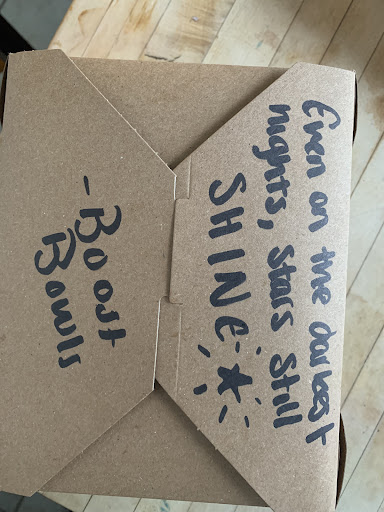 Even on the darkest
nights, Stars Still
SHINE
- Boost
Bowls